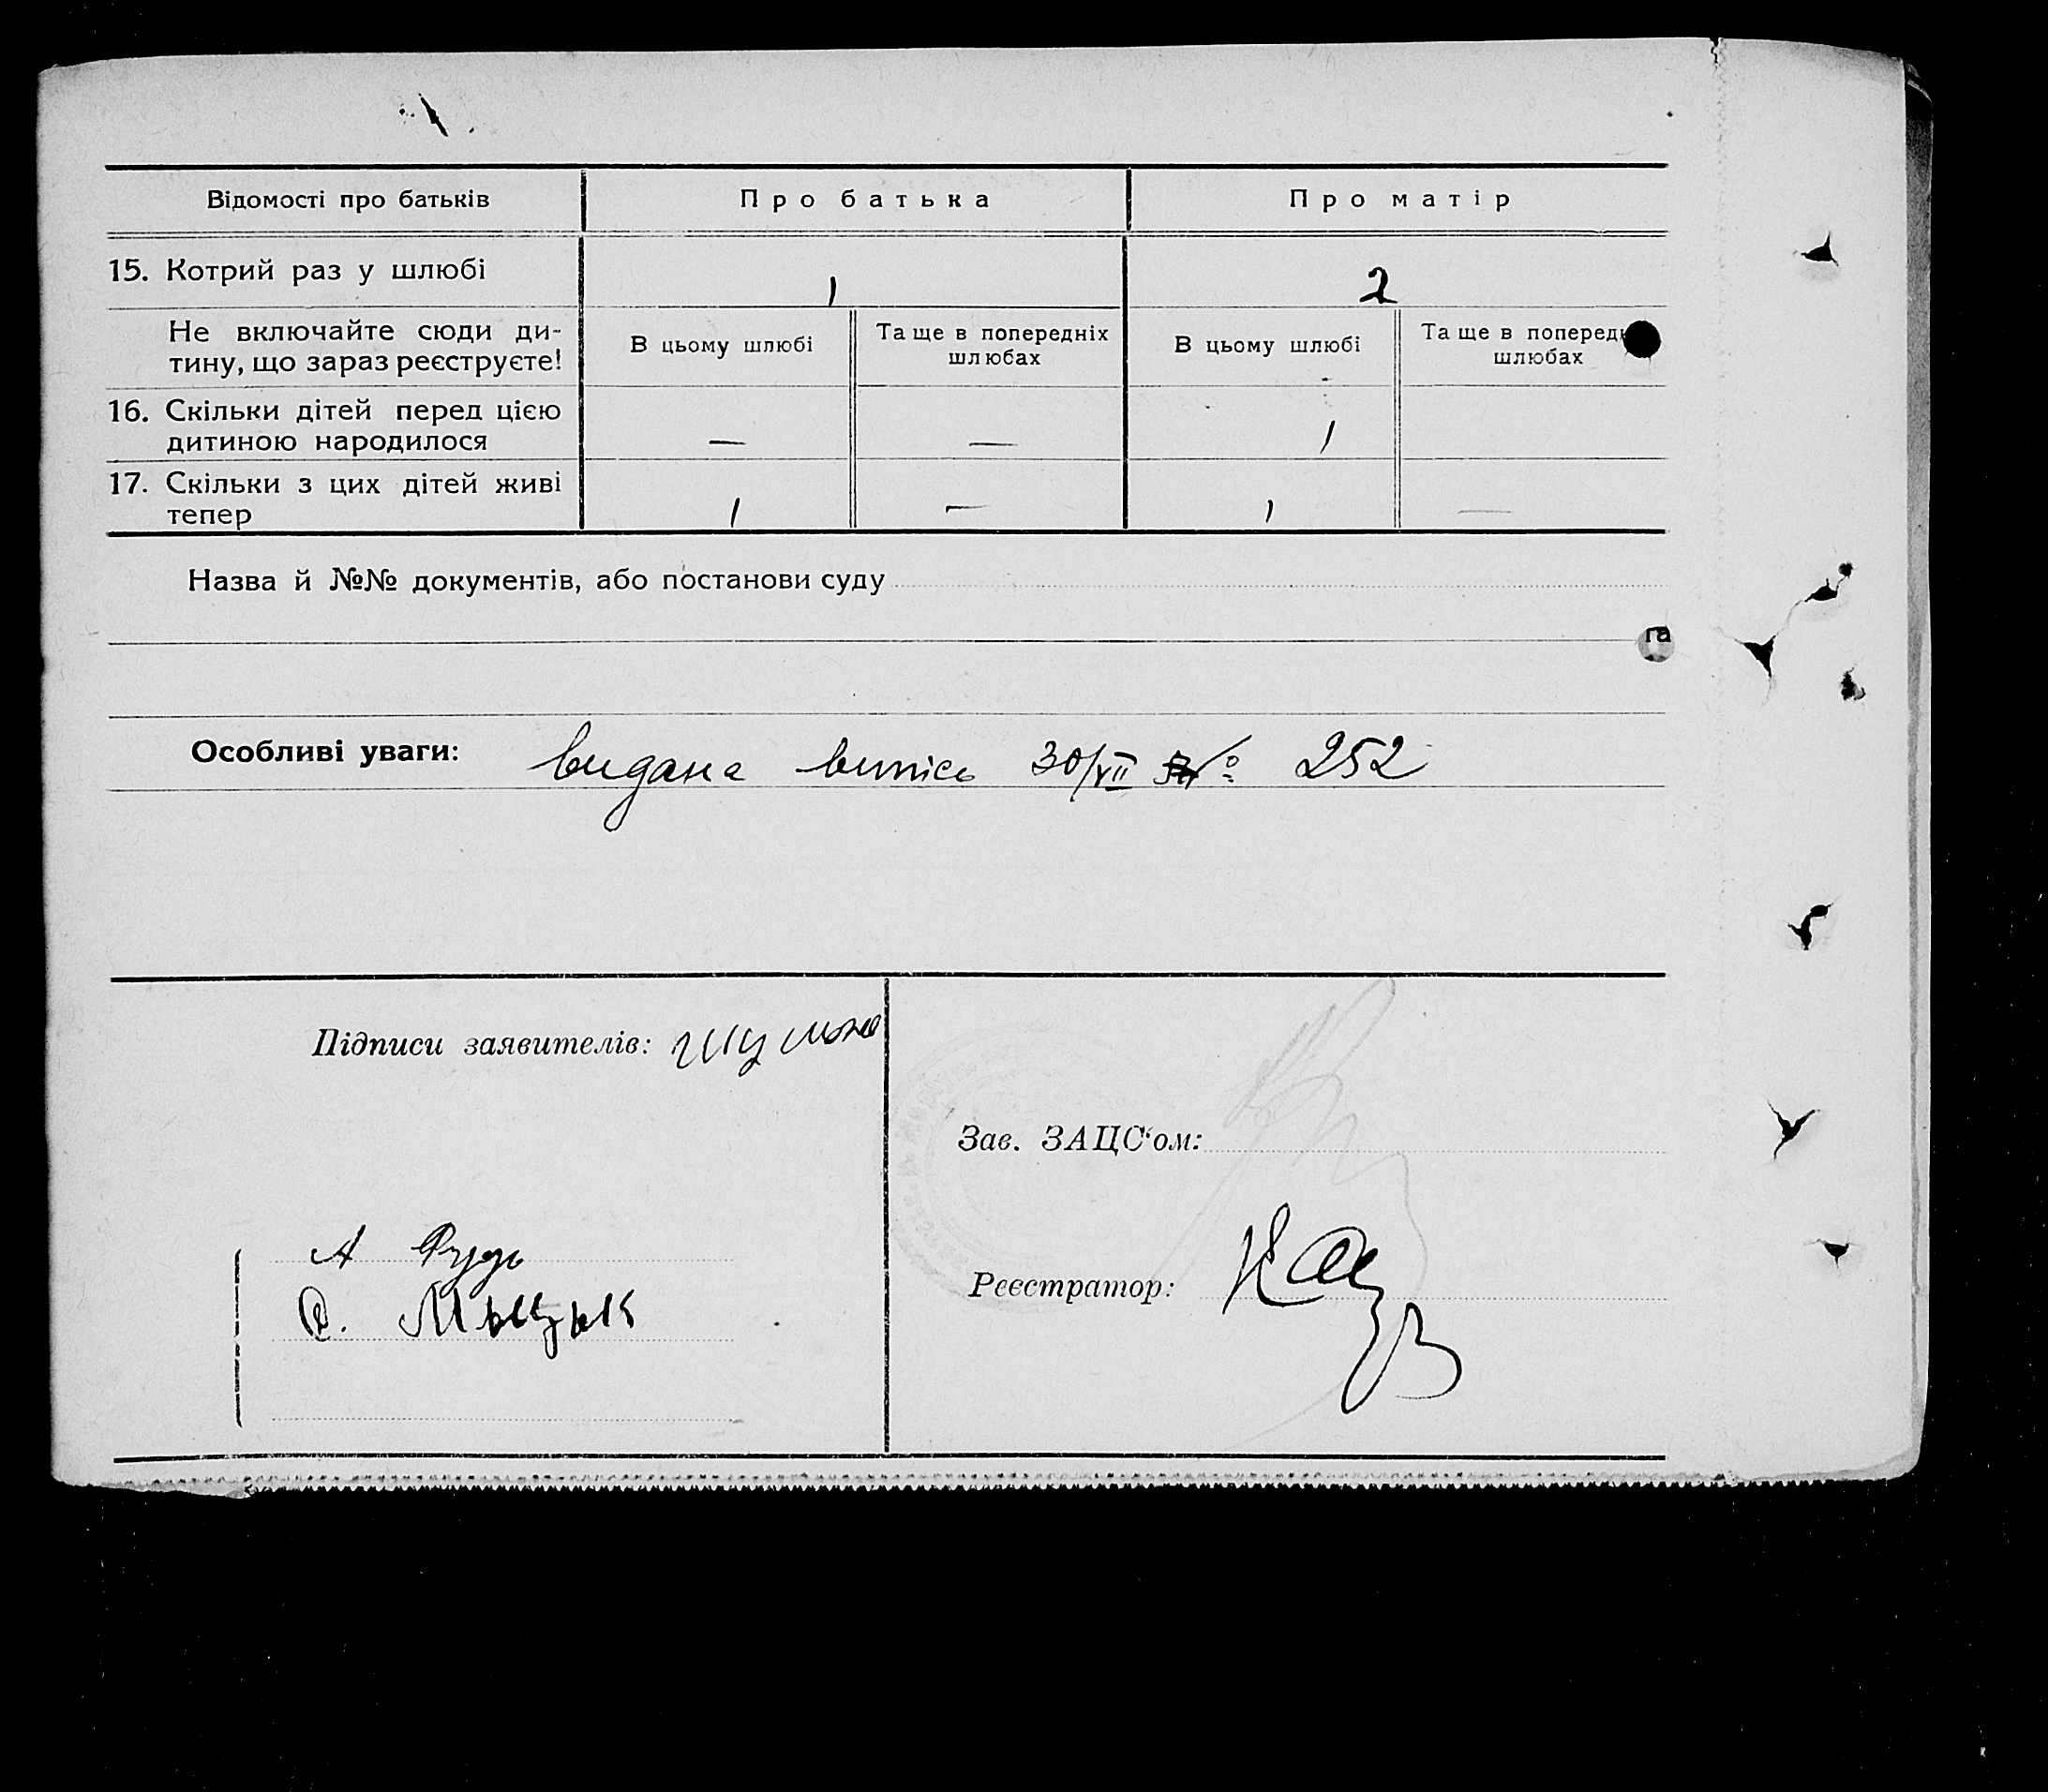 Відомості про батьків
Про батька
Про матір
15. Котрий раз у шлюбі
1
2
Не включайте сюди ди-
тину, що зараз реєструєте!
В цьому шлюбі
Та ще в попередніх
шлюбах
В цьому шлюбі
Та ще в поперед
шлюбах
16. Скільки дітей перед цією
дитиною народилося
—
—
1
17. Скільки з цих дітей живі
тепер
1
—
1
—
Назва й №№ документів, або постанови суду
га
Особливі уваги: видана випись 30/VII № 252
Підписи заявителів:
Зав. ЗАЦС‘ом:
А Рудь
О. Мыцык
Реєстратор: